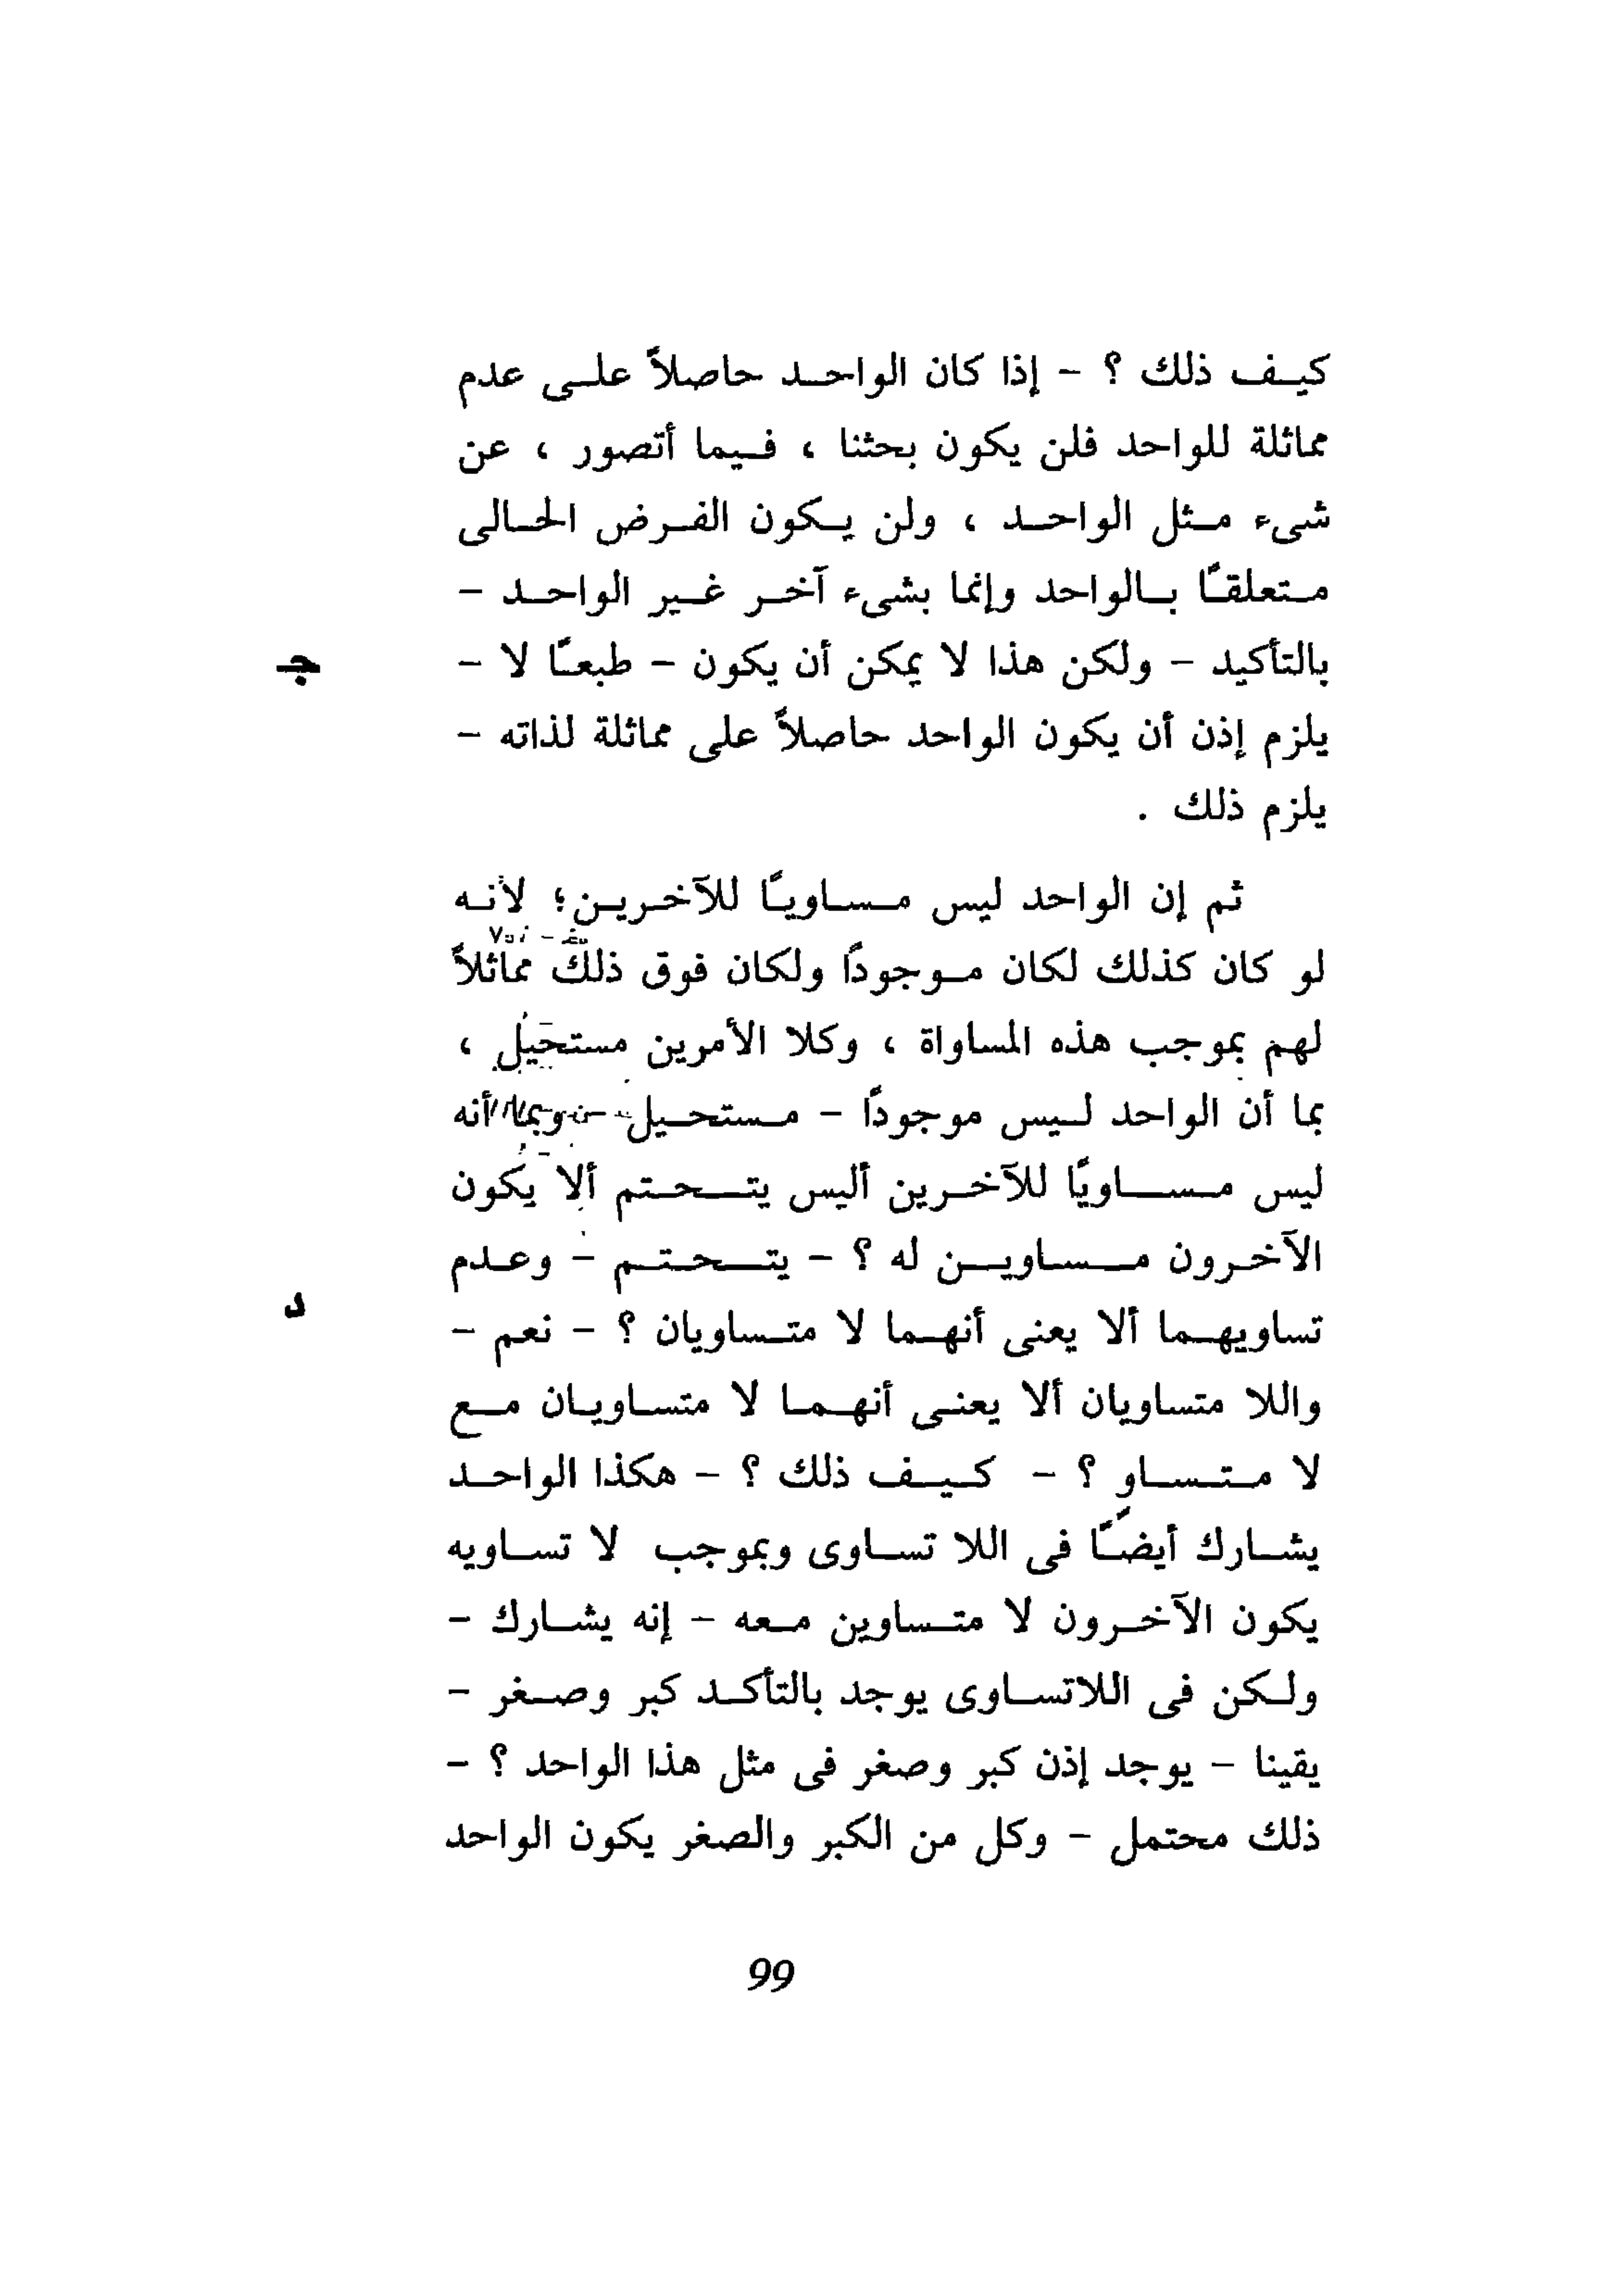 كيف ذلك ؟ - إذا كان الواحد حاصلاً على عدم
مماثلة للواحد فلن يكون بحثنا ، فيما أتصور ، عن
شىء مثل الواحد ، ولن يكون الفرض الحالى
متعلقًا بالواحد وإنما بشىء آخر غير الواحد -
بالتأكيد - ولكن هذا لا يمكن أن يكون - طبعًا لا -
جـ
يلزم إذن أن يكون الواحد حاصلاً على مماثلة لذاته -
يلزم ذلك .
ثم إن الواحد ليس مساويًا للآخرين؛ لأنه
لو كان كذلك لكان موجودًا ولكان فوق ذلك مماثلاً
لهم بموجب هذه المساواة ، وكلا الأمرين مستحيل ،
بما أن الواحد ليس موجودًا - مستحيل - وبما أنه
ليس مساويًا للآخرين أليس يتحتم ألا يكون
الآخرون مساوين له ؟ - يتحتم - وعدم
د
تساويهما ألا يعنى أنهما لا متساويان ؟ - نعم -
واللا متساويان ألا يعنى أنهما لا متساويان مع
لا متساو ؟ - كيف ذلك ؟ - هكذا الواحد
يشارك أيضًا فى اللا تساوى وبموجب لا تساويه
يكون الآخرون لا متساوين معه - إنه يشارك -
ولكن فى اللاتساوى يوجد بالتأكد كبر وصغر -
يقينا - يوجد إذن كبر وصغر فى مثل هذا الواحد ؟ -
ذلك محتمل - وكل من الكبر والصغر يكون الواحد
99